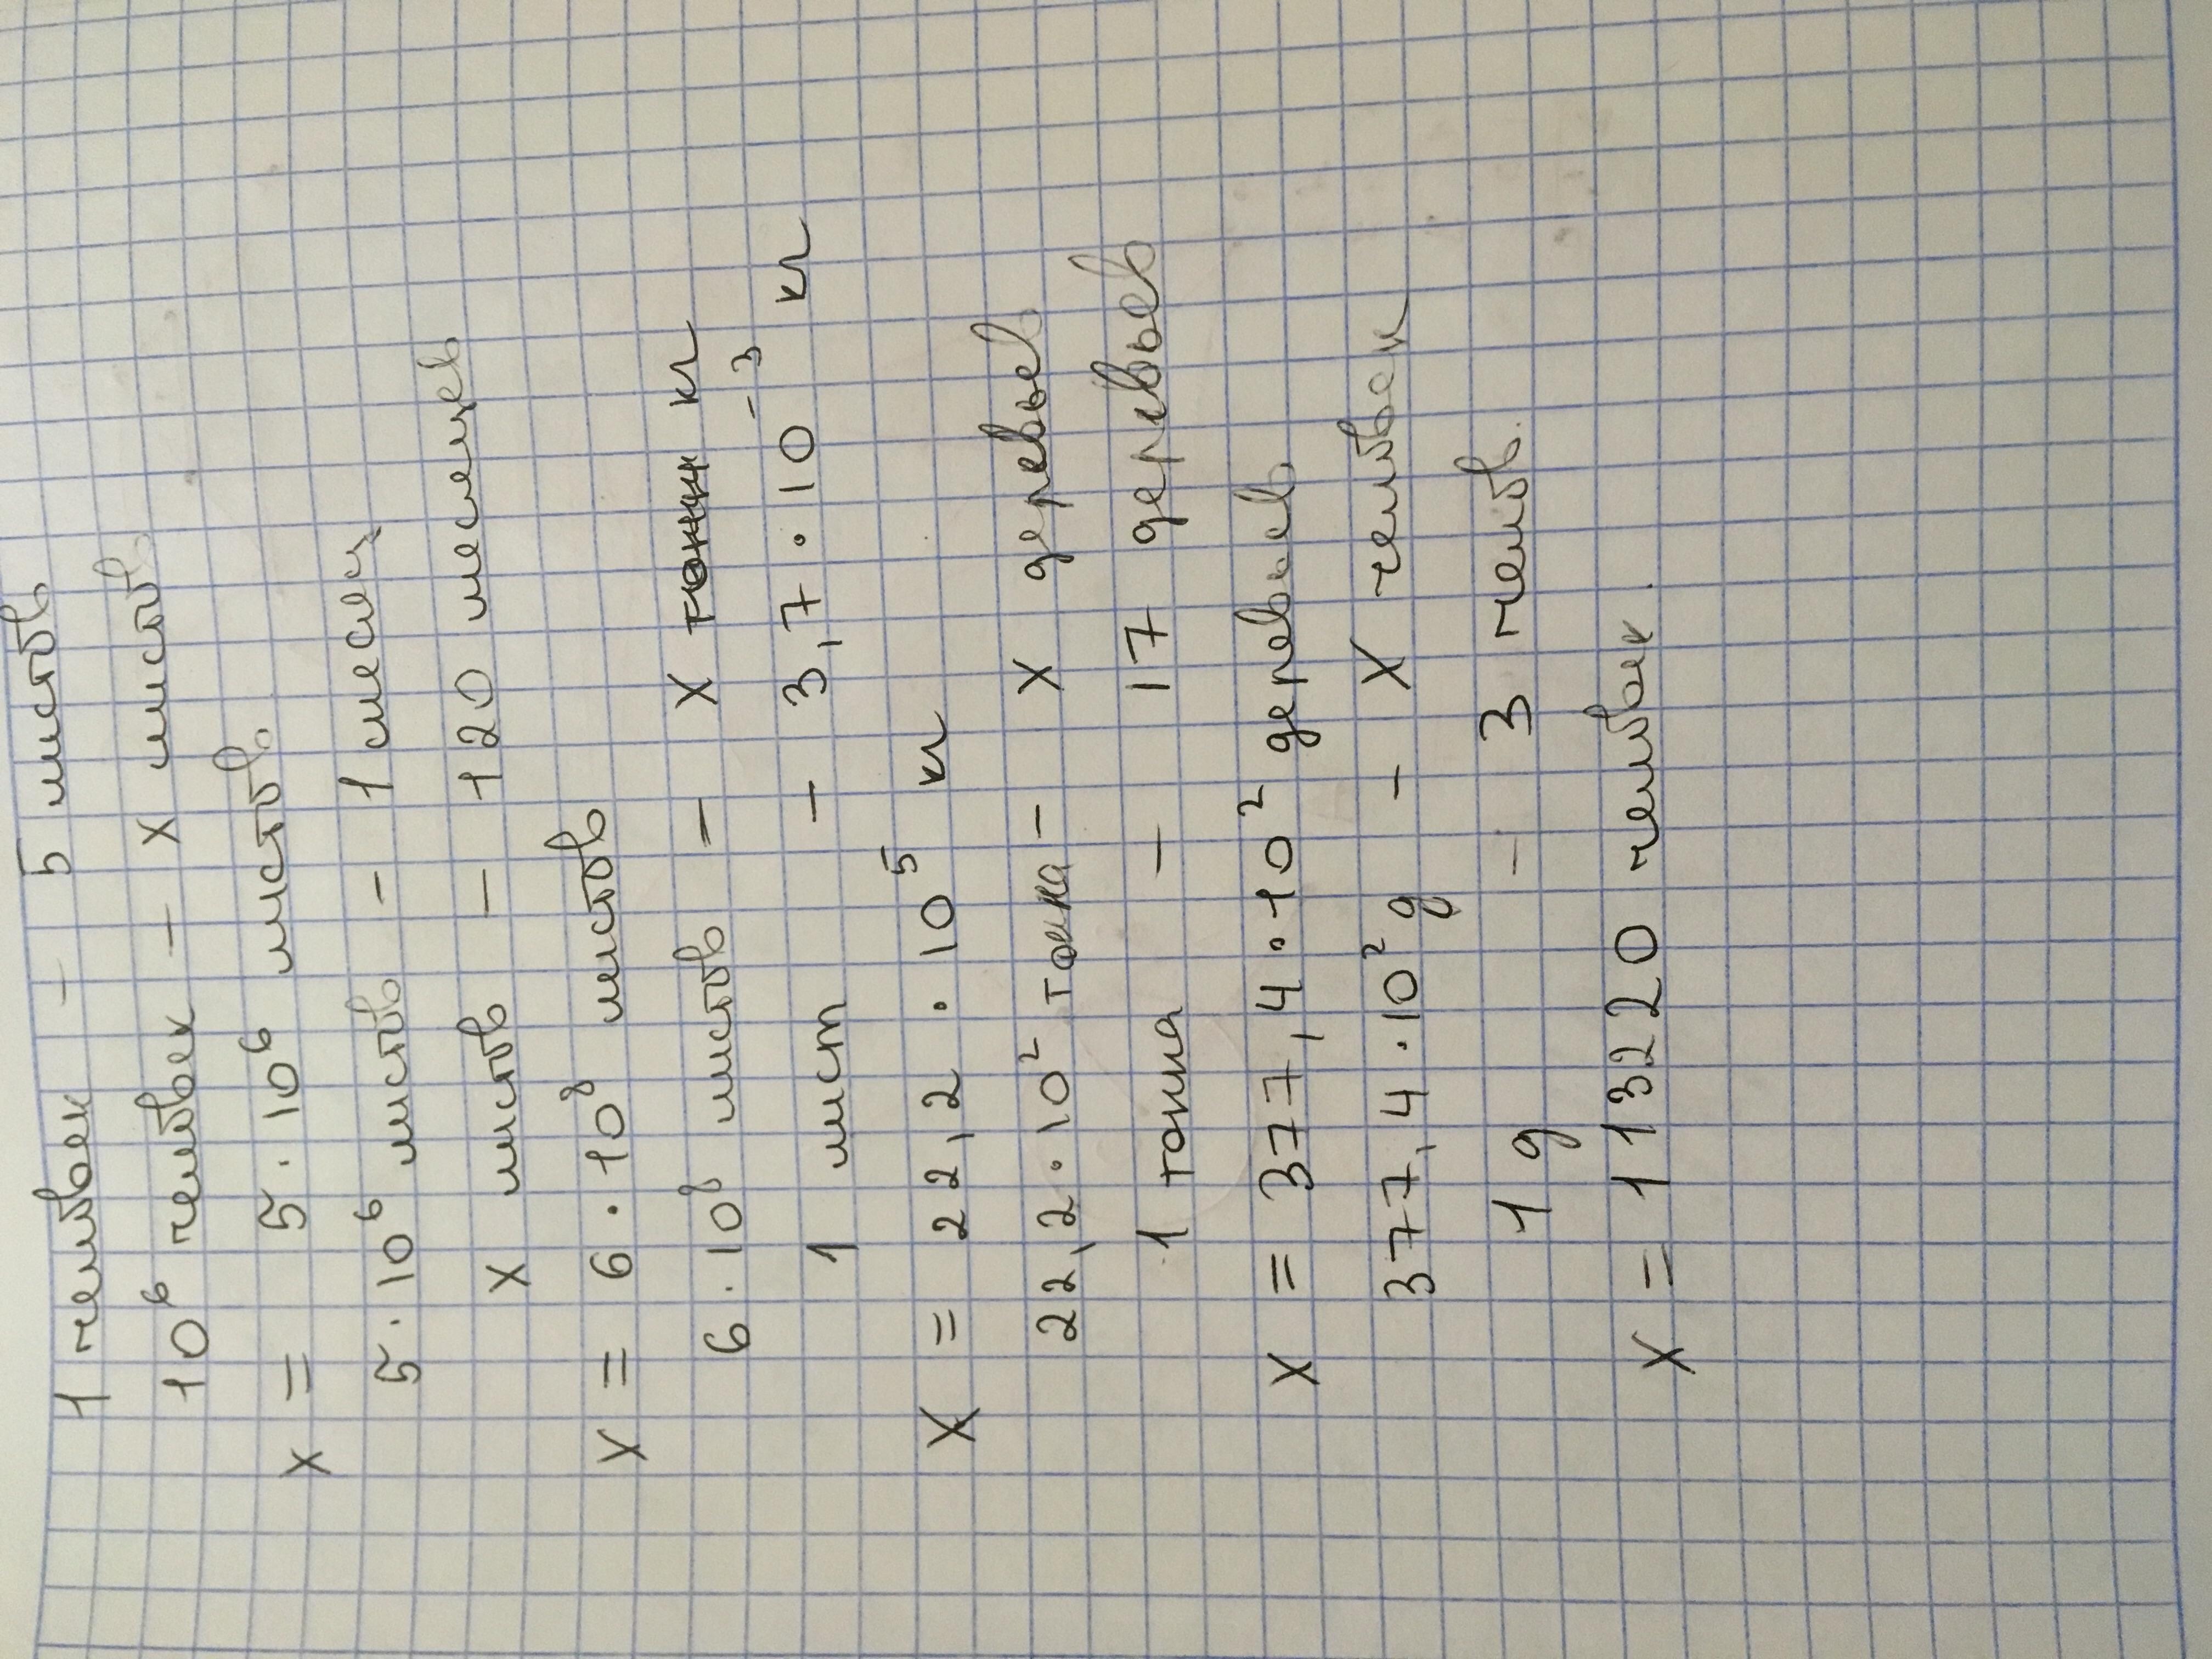 1 человек - 5 листов
10⁶ человек - х листов
х = 5 · 10⁶ листов.
5 · 10⁶ листов - 1 месяц
х листов - 120 месецев
х = 6 · 10⁸ листов
6 · 10⁸ листов - х тонн кг
1 лист - 3,7 · 10⁻³ кг
х = 22,2 · 10⁵ кг
22,2 · 10² тонна - х деревьев
1 тонна - 17 деревьев
х = 377,4 · 10² деревьев
377,4 · 10² д - х человек
1 д - 3 челов.
х = 113220 человек.